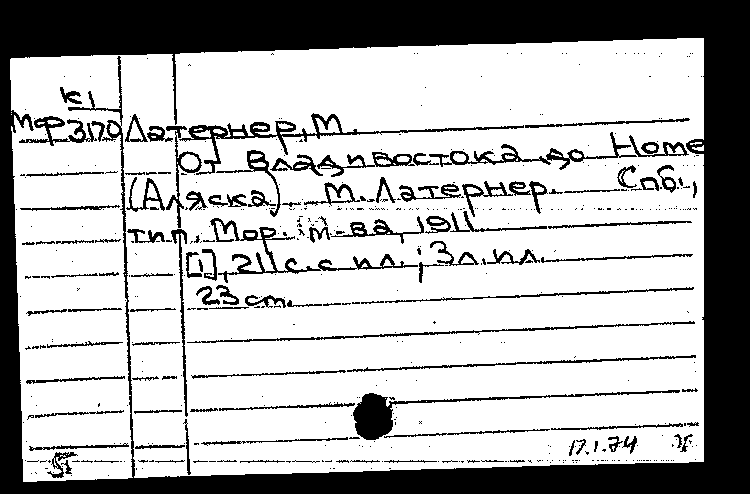 К1
МФ 3170 Латернер, М.
От Владивостока до Ноте
(Аляска) М. Латернер. Спб.,
тип. Мор. М-ва, 1911
[1], 211 с. с ил.; 3 л. ил.
23 см.
17.1.74